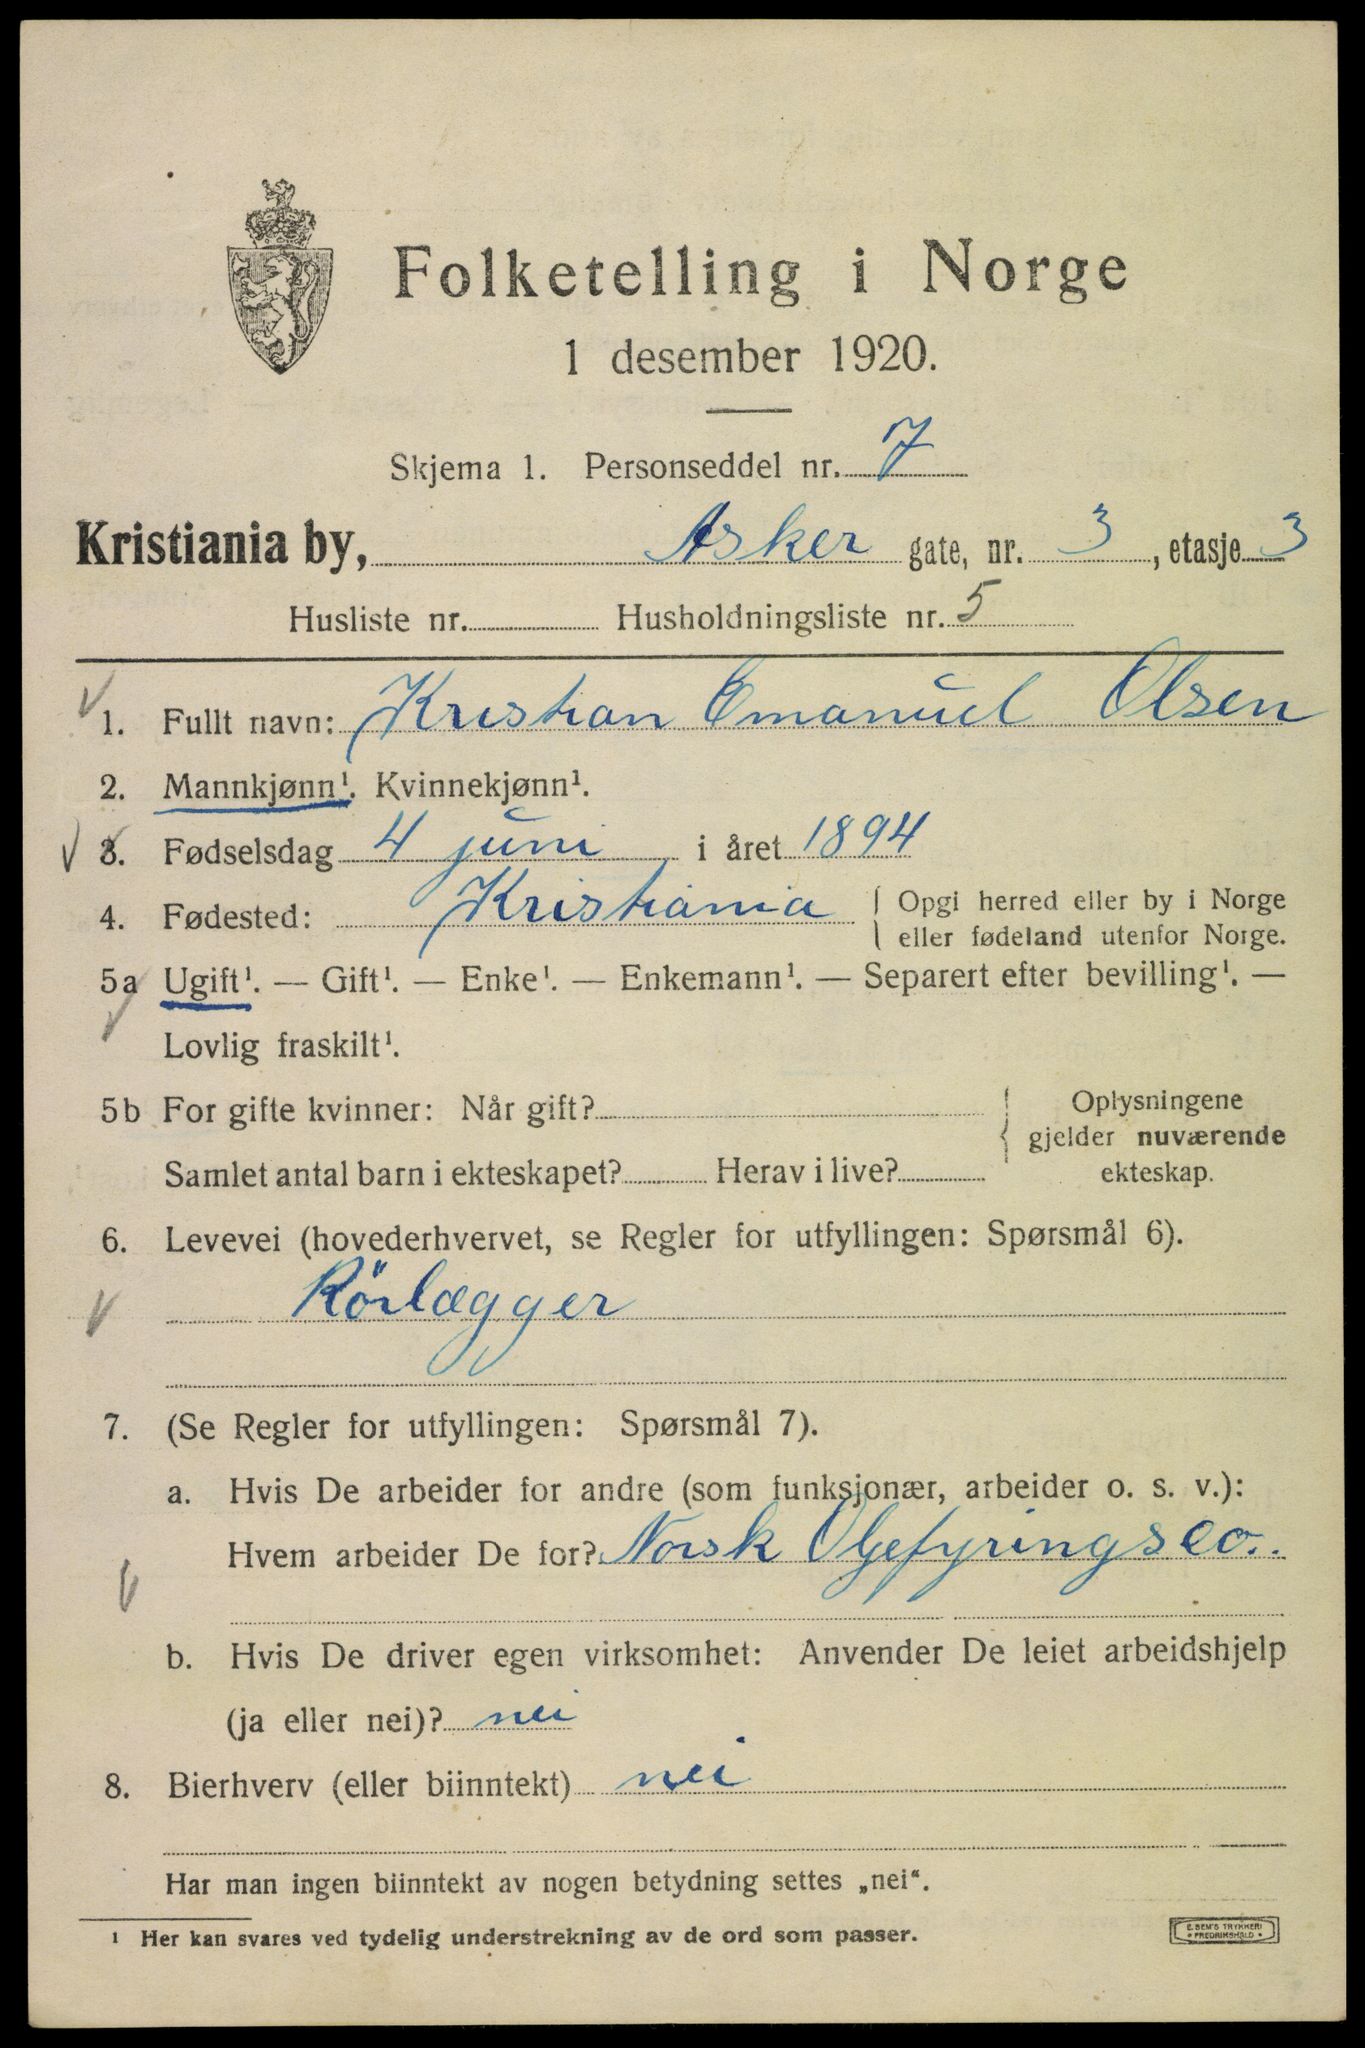 Folketelling i Norge
1 desember 1920.
Skjema 1. Personseddel nr. 7
Kristiania by, Asker gate, nr. 3, etasje 3
Husliste nr. Husholdningsliste nr. 5
1. Fullt navn: Kristian Emanuel Olsen
2. Mannkjønn¹. Kvinnekjønn¹.
3. Fødselsdag 4 juni i året 1894
4. Fødested: Kristiania { Opgi herred eller by i Norge
eller fødeland utenfor Norge.
5a Ugift¹. — Gift¹. — Enke¹. — Enkemann¹. — Separert efter bevilling¹. —
Lovlig fraskilt¹.
5b For gifte kvinner: Når gift? { Oplysningene
gjelder nuværende
Samlet antal barn i ekteskapet? Herav i live? ekteskap.
6. Levevei (hovederhvervet, se Regler for utfyllingen: Spørsmål 6).
Rörlægger
7. (Se Regler for utfyllingen: Spørsmål 7).
a. Hvis De arbeider for andre (som funksjonær, arbeider o. s. v.):
Hvem arbeider De for? Norsk Oljefyringsco.
b. Hvis De driver egen virksomhet: Anvender De leiet arbeidshjelp
(ja eller nei)? nei
8. Bierhverv (eller biinntekt) nei
Har man ingen biinntekt av nogen betydning settes „nei“.
¹ Her kan svares ved tydelig understrekning av de ord som passer.
E. SEM'S TRYKKERI
• FREDRIKSHALD •